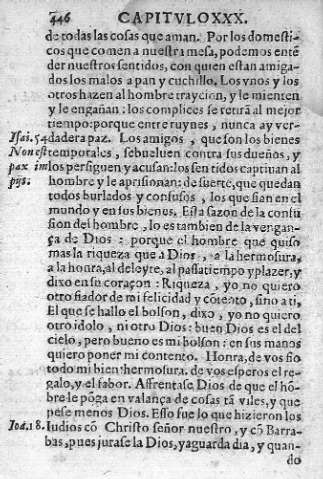 446 CAPITVLO XXX.
de todas las cosas que aman. Por los domesti-
cos que comen a nuestra mesa, podemos enté
der nuestros sentidos, con quien estan amiga-
dos los malos a pan y cuchillo. Los vnos y los
otros hazen al hombre trayciõ, y le mienten
y le engañan: los complices se retirã al mejor
tiempo: porque entre ruynes, nunca ay ver-
Isai. 54 dadera paz. Los amigos, que son los bienes
Non est temporales, se bueluen contra sus dueños, y
pax im los persiguen y acusan: los sentidos captiuan al
pijs. hombre y le aprisionan: de suerte, que quedan
todos burlados y confusos, los que fian en el
mundo y en sus bienes. Esta razon de la confu
sion del hombre, lo es tambien de la vengan-
ça de Dios: porque el hombre que quiso
mas la riqueza que a Dios, a la hermosura,
a la honra, al deleyte, al passatiempo y plazer, y
dixo en su coraçon: Riqueza, yo no quiero
otro fiador de mi felicidad y cõtento, sino a ti,
El que se hallo el bolson, dixo, yo no quiero
otro idolo, ni otro Dios: buen Dios es el del
cielo, pero bueno es mi bolson: en sus manos
quiero poner mi contento. Honra, de vos fio
todo mi bien: hermosura, de vos espero el re-
galo, y el fabor. Affrentase Dios de que el hõ-
bre le põga en valança de cosas tã viles, y que
pese menos Dios. Esso fue lo que hizieron los
Ioã. 18. Iudios cõ Christo señor nuestro, y cõ Barra-
bas, pues jurase la Dios, y aguarda dia, y quan-
do